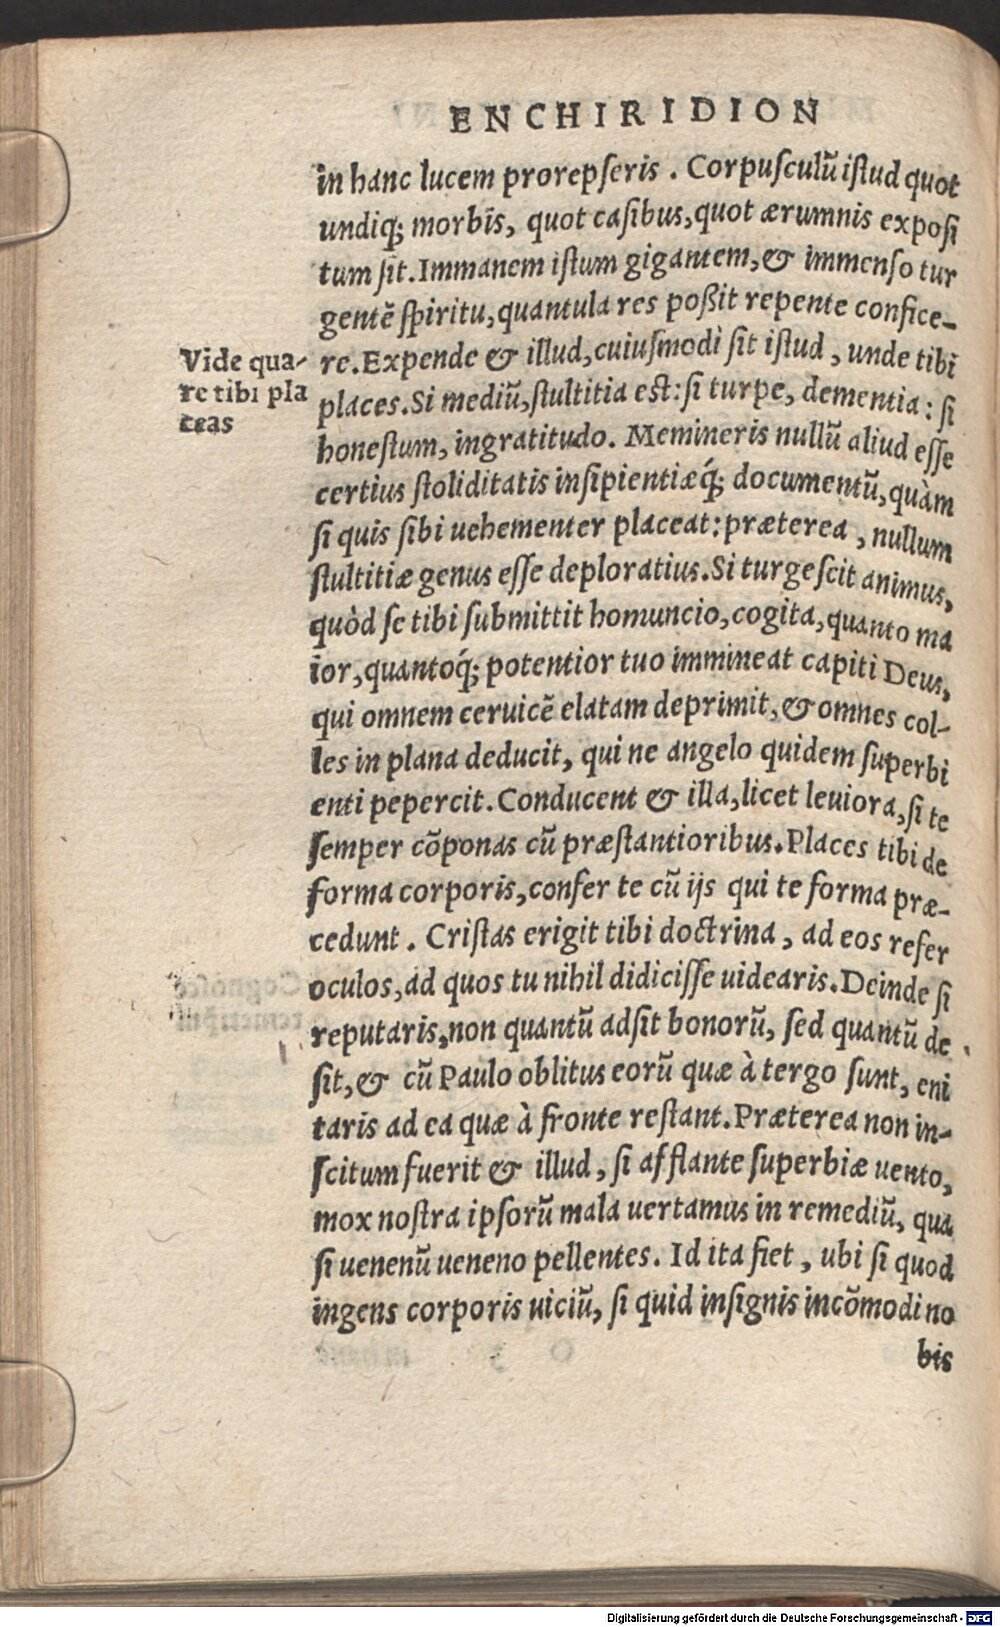 ENCHIRIDION
in hanc lucem prorepſeris . Corpuſculũ iſtud quot
undiq; morbis, quot caſibus, quot ærumnis expoſi
tum ſit. Immanem iſtum gigantem, & immenſo tur
gentẽ ſpiritu, quantula res poßit repente confice-
re. Expende & illud, cuiuſmodi ſit iſtud, unde tibi
places. Si mediũ, ſtultitia eſt: ſi turpe, dementia: ſi
honeſtum, ingratitudo. Memineris nullũ aliud eſſe
certius ſtoliditatis inſipientiæq́; documentũ, quàm
ſi quis ſibi uehementer placeat: præterea, nullum
ſtultitiæ genus eſſe deploratius. Si turgeſcit animus,
quòd ſe tibi ſubmittit homuncio, cogita, quanto ma
ior, quantoq́; potentior tuo immineat capiti Deus,
qui omnem ceruicẽ elatam deprimit, & omnes col-
les in plana deducit, qui ne angelo quidem ſuperbi
enti pepercit. Conducent & illa, licet leuiora, ſi te
ſemper cõponas cũ præſtantioribus. Places tibi de
forma corporis, confer te cũ ijs qui te forma præ-
cedunt . Criſtas erigit tibi doctrina, ad eos refer
oculos, ad quos tu nihil didiciſſe uidearis. Deinde ſi
reputaris, non quantũ adſit bonorũ, ſed quantũ de
ſit, & cũ Paulo oblitus eorũ quæ à tergo ſunt, eni
taris ad ea quæ à fronte reſtant. Præterea non in-
ſcitum fuerit & illud, ſi afflante ſuperbiæ uento,
mox noſtra ipſorũ mala uertamus in remediũ, qua
ſi uenenũ ueneno pellentes. Id ita fiet, ubi ſi quod
ingens corporis uiciũ, ſi quid inſignis incõmodi no
bis
Vide qua-
re tibi pla
ceas
Digitalisierung gefördert durch die Deutsche Forschungsgemeinschaft - DFG